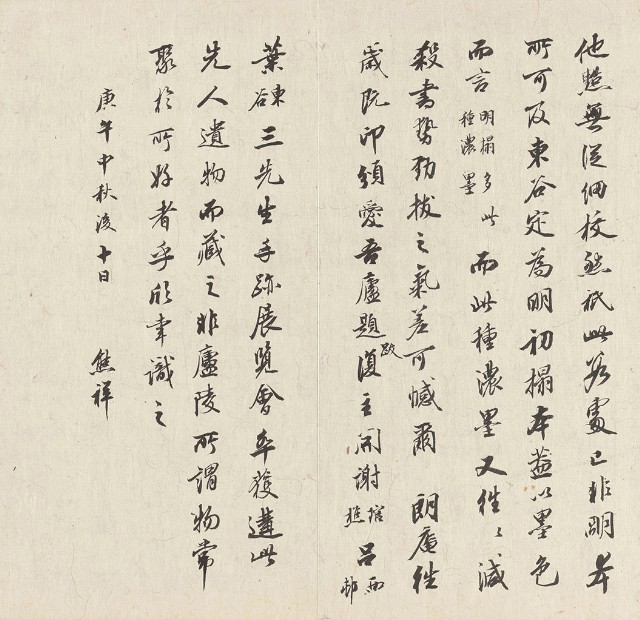 他照無從細校然祇此數處已非明本
所可及東谷定為明初搨本蓋以墨色
而言明搨多此種濃墨而此種濃墨又往〻減
殺書勢勁拔之氣差可憾爾 朗庵往
歲既印頒愛吾廬題跋復主開謝琯樵呂西邨
葉東谷三先生手跡展覽會卒獲遘此
先人遺物而藏之非廬陵所謂物常
聚於所好者乎欣幸識之
庚午中秋後十日 熊祥